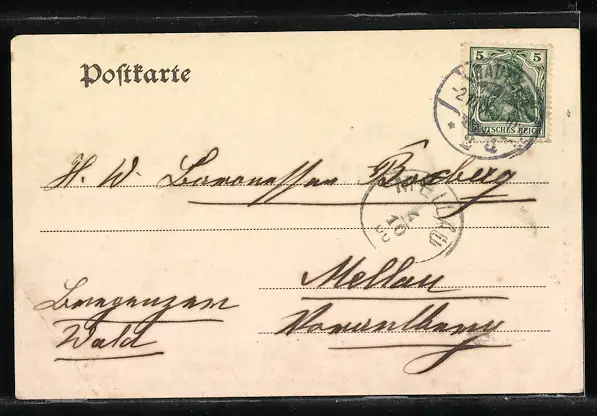 Postkarte
5 5
DEUTSCHES REICH
H. W. Baronesse Boxberg
MELLAU
Mellau
Bregenzer
Vorarlberg
Wald